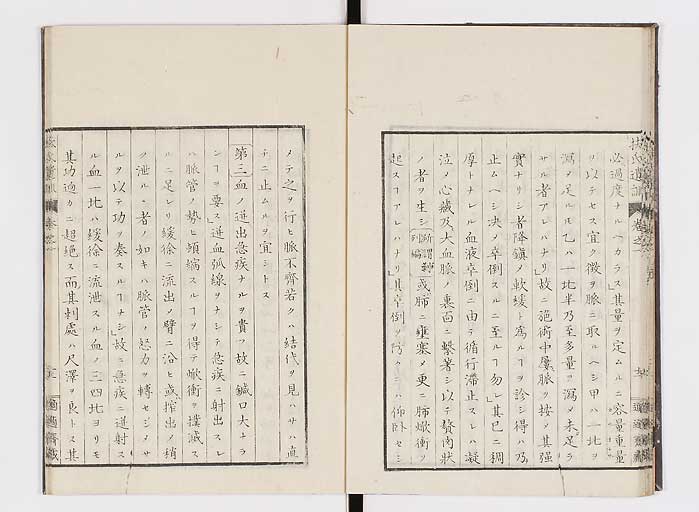 必過度ナルヘカラス」其量ヲ定ムルニ容量重量
ヲ以テセス宜ク徴ヲ脈ニ取ルヘシ甲ハ一比ヲ
瀉メ足ルモ乙ハ一比半乃至多量ヲ瀉メ未足ラ
サル者アレハナリ」故ニ施術中屢脈ヲ按メ其强
實ナリシ者降鎮メ軟緩ト為ルヿヲ診シ得ハ乃
止ムヘシ決メ卒倒スルニ至ルヿ勿レ其已ニ稠
厚トナレル血液卒倒ニ由テ循行滯止スレハ凝
泣メ心臓及大血脈ノ裏面ニ繋著シ以テ贅肉狀
ノ者ヲ生シ或肺ニ壅塞メ更ニ肺焮衝ヲ
起スヿアレハナリ」其卒倒ヲ防クニハ仰臥セシ
メテ之ヲ行ヒ脈不齊若クハ結代ヲ見ハサハ直
チニ止ムルヲ宜シトス
第三血ノ迸出急疾ナルヲ貴フ故ニ鍼口大ナラ
ンヿヲ要ス」迸血弧線ヲナシテ急疾ニ射出スレ
ハ脈管ノ勢ヒ頓縮スルヿヲ得テ焮衝ヲ撲滅ス
ルニ足レリ緩徐ニ流出メ臂ニ沿ヒ或搾出メ稍
ク泄ルヽ者ノ如キハ脈管ノ怒力ヲ轉セシメサ
ルヲ以テ功ヲ奏スルヿナシ」故ニ急疾ニ迸射ス
ル血一比ハ緩徐ニ流泄スル血ノ三四比ヨリモ
其功逈カニ超絶ス而其刺處ハ尺澤ヲ良トス其